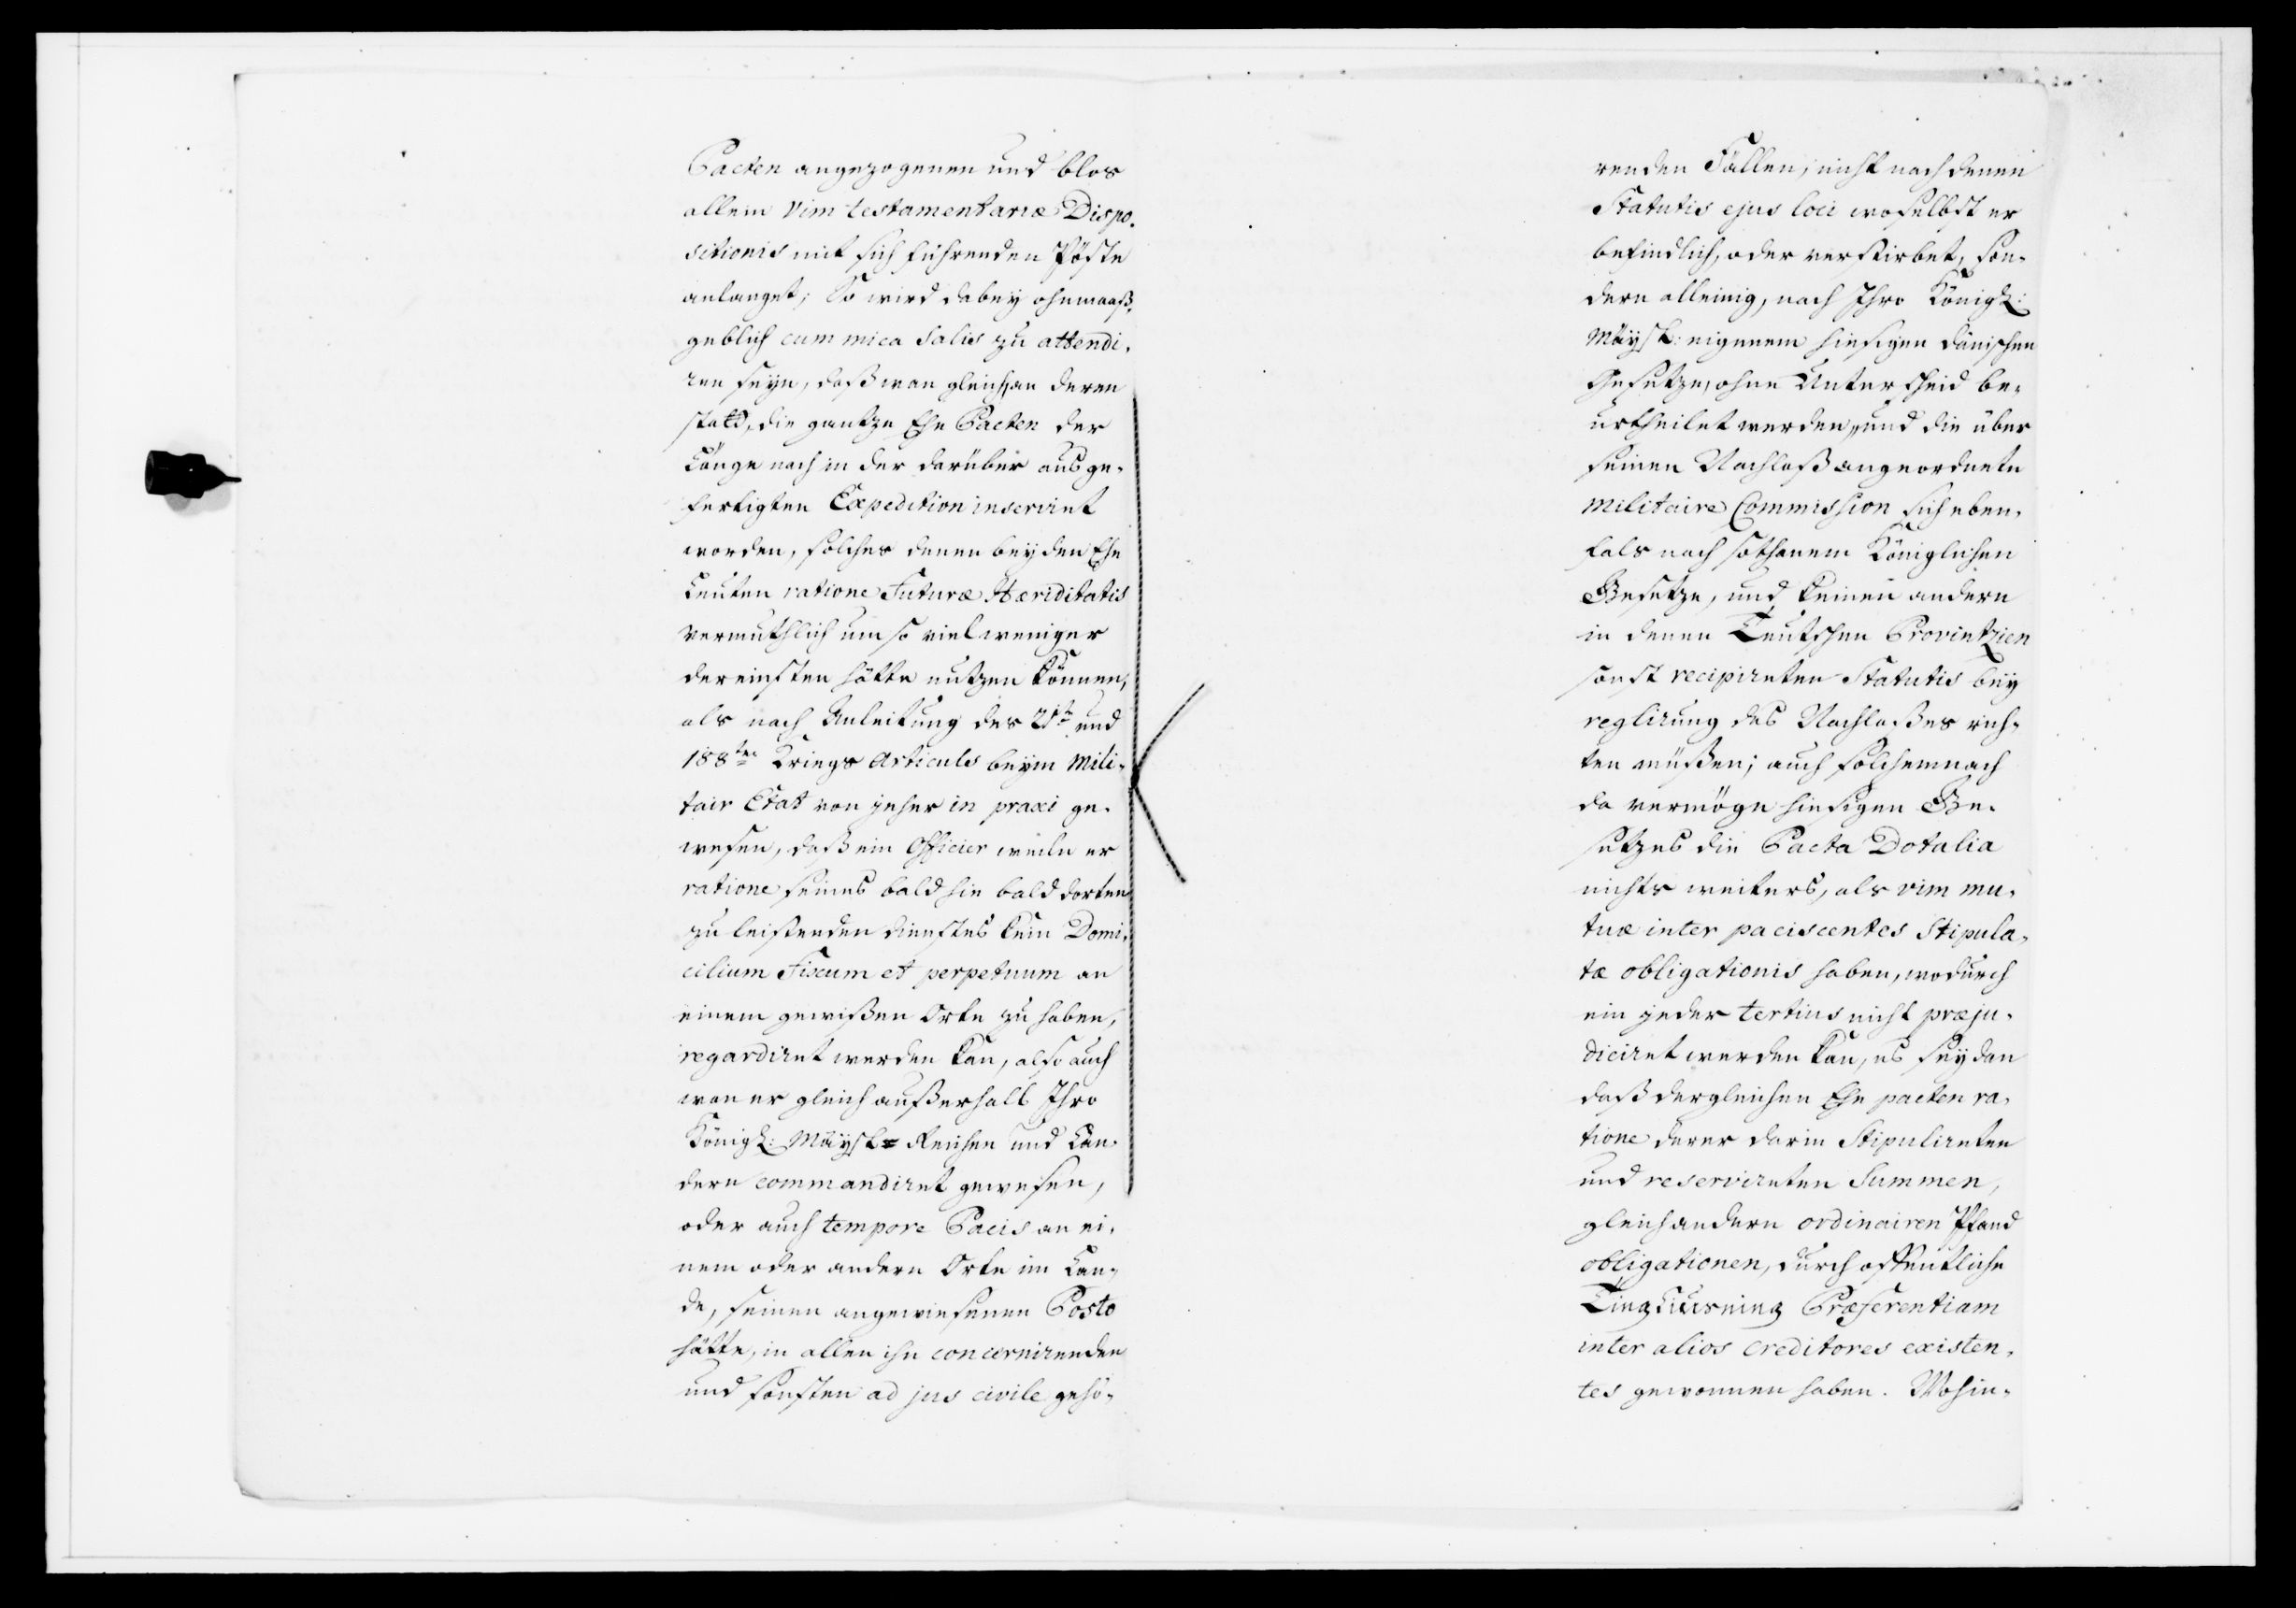 Pacten angezogenen und blos
allein vim testamentariæ Dispo-
sitionis mit sich führenden Pöste
anlanget; So wird dabey ohnmaaß-
geblich cum mica Salis zu attendi-
ren seyn, daß wan gleich, an deren
statt, die gantze Ehe Pacten der
Länge nach in der darüber ausge-
fertigten Expedition inseriret
worden, solches denen beyden Ehe
Leuten ratione Futuræ Hæriditatis
vermuthlich um so viel weniger
dereinsten hätte nutzen können,
als nach Anleitung des 21ste und
188ten Kriegs Articuls beym Mili-
tair Etat von jeher in praxi ge-
wesen, daß ein Officier weile er
ratione seines bald hie bald dorten
zu leistenden dienstes kein Domi-
cilium Fixum et perpetuum an
einem gewißen Orte zu haben,
regardiret werden kan, also auch
wan er gleich außerhalb Ihro
Königl: Mayst: Reichen und Län-
dern commandiret gewesen,
oder auch tempore Pacis an ei-
nem oder andern Orte im Lan-
de, seinen angewiesenen Posto
hätte, in allen ihn concernirenden
und sonsten ad jus civile gehö-
renden Fällen, nicht nach denen
Statutis ejus loci woselbst er
befindlich, oder verstirbet, son-
dern alleinig, nach Ihro Königl:
Mayst: eigenem hiesigen dänischen
Gesetze, ohne Unterscheid be-
urtheilet werden, und die über
seinen Nachlaß angeordnete
Militaire Commission sich eben-
fals nach sothanem Königlichen
Gesetze, und keinen andern
in denen Teutschen Provintzien
sonst recipirten Statutis bey
reglirung des Nachlaßes rich-
ten müßen; auch solchemnach
da vermöge hiesigen Ge-
setzes die Pacta Dotalia
nichts weiters, als vim mu-
tuæ inter paciscentes Stipula-
tæ obligationis haben, wodurch
ein jeder tertius nicht præju-
diciret werden kan, es sey dan
daß dergleichen Ehe pacten ra-
tione derer darin Stipulirten
und reservirten Summen,
gleich andern ordinairen Pfand
obligationen, durch öffentliche
Tinglüusning Præferentiam
inter alios creditores existen-
tes gewonnen haben. Wohin-